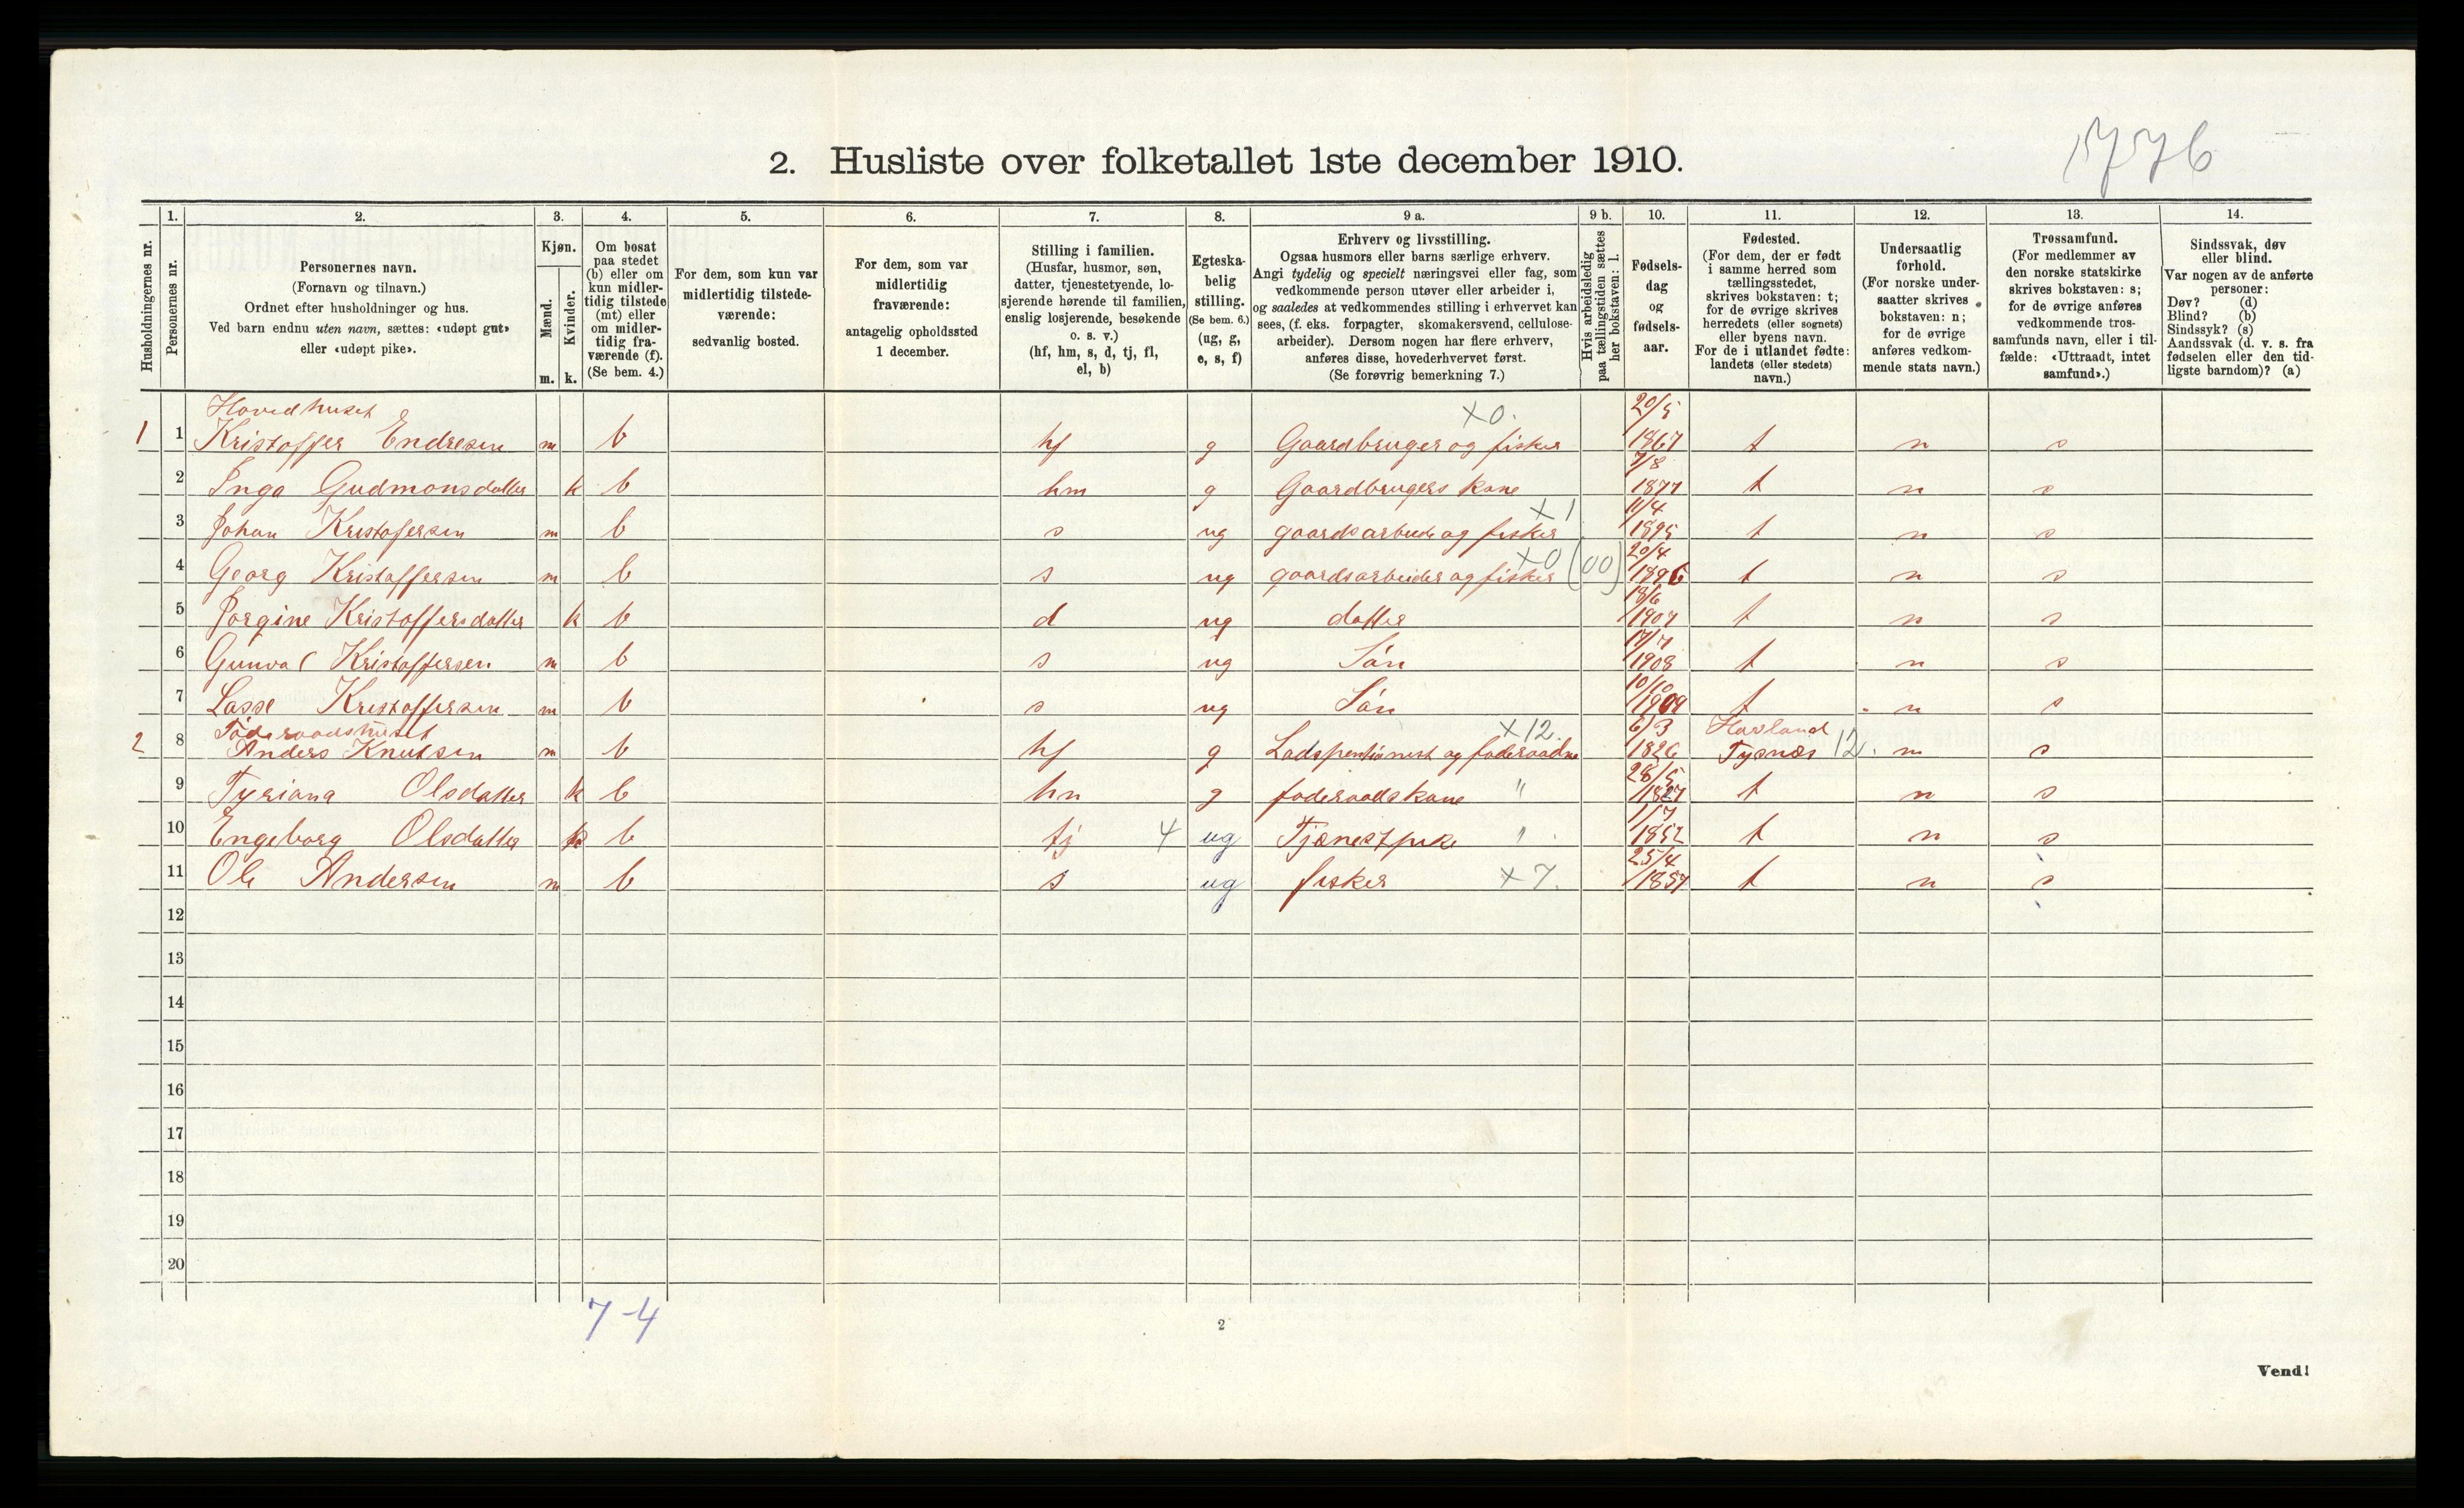 1776
2. Husliste over folketallet 1ste december 1910.
Husholdningernes nr.
1.
Personernes nr.
2.
Personernes navn.
(Fornavn og tilnavn.)
Ordnet efter husholdninger og hus.
Ved barn endnu uten navn, sættes: «udøpt gut»
eller «udøpt pike».
3.
Kjøn.
Mænd.
m.
Kvinder.
k.
4.
Om bosat
paa stedet
(b) eller om
kun midler-
tidig tilstede
(mt) eller
om midler-
tidig fra-
værende (f).
(Se bem. 4.)
5.
For dem, som kun var
midlertidig tilstede-
værende:
sedvanlig bosted.
6.
For dem, som var
midlertidig
fraværende:
antagelig opholdssted
1 december.
7.
Stilling i familien.
(Husfar, husmor, søn,
datter, tjenestetyende, lo-
sjerende hørende til familien,
enslig losjerende, besøkende
o. s. v.)
(hf, hm, s, d, tj, fl,
el, b)
8.
Egteska-
belig
stilling.
(Se bem. 6.)
(ug, g,
e, s, f)
9 a.
Erhverv og livsstilling.
Ogsaa husmors eller barns særlige erhverv.
Angi tydelig og specielt næringsvei eller fag, som
vedkommende person utøver eller arbeider i,
og saaledes at vedkommendes stilling i erhvervet kan
sees, (f. eks. forpagter, skomakersvend, cellulose-
arbeider). Dersom nogen har flere erhverv,
anføres disse, hovederhvervet først.
(Se forøvrig bemerkning 7.)
9 b.
Hvis arbeidsledig
paa tællingstiden sættes
her bokstaven: l.
10.
Fødsels-
dag
og
fødsels-
aar.
11.
Fødested.
(For dem, der er født
i samme herred som
tællingsstedet,
skrives bokstaven: t;
for de øvrige skrives
herredets (eller sognets)
eller byens navn.
For de i utlandet fødte:
landets (eller stedets)
navn.)
12.
Undersaatlig
forhold.
(For norske under-
saatter skrives
bokstaven: n;
for de øvrige
anføres vedkom-
mende stats navn.)
13.
Trossamfund.
(For medlemmer av
den norske statskirke
skrives bokstaven: s;
for de øvrige anføres
vedkommende tros-
samfunds navn, eller i til-
fælde: «Uttraadt, intet
samfund».)
14.
Sindssvak, døv
eller blind.
Var nogen av de anførte
personer:
Døv? (d)
Blind? (b)
Sindssyk? (s)
Aandssvak (d. v. s. fra
fødselen eller den tid-
ligste barndom)? (a)
Hovedhuset X0. 20/5
1 1 Kristoffer Endresen m b hf g Gaardbruger og fisker 1867 t n s
7/8
2 Inga Gudmonsdatter k b hm g Gaardbrugers kone 1877 t n s
X1 11/4
3 Johan Kristofersen m b s ug gaardsarbeide og fisker 1895 t n s
X0 (00) 20/4
4 Georg Kristoffersen m b s ug gaardsarbeider og fisker 1896 t n s
18/6
5 Jorgine Kristoffersdatter k b d ug datter 1907 t n s
17/7
6 Gunval Kristoffersen m b s ug Sön 1908 t n s
10/10
7 Lasse Kristoffersen m b s ug Sön 1909 t n s
Föderaadshuset X12. 6/3 Havland
2 8 Anders Knutsen m b hf g Ladspentionist og foderaadm 1826 Tysnæs 12. n s
28/5
9 Tyriana Olsdatter k b hm g foderaadskone " 1827 t n s
1/7
10 Engeborg Olsdatter k b tj 4 ug Tjænestpike " 1852 t n s
25/4
11 Ole Andersen m b s ug fisker X7. 1857 t n s
12
13
14
15
16
17
18
19
20
7-4
2
Vend!